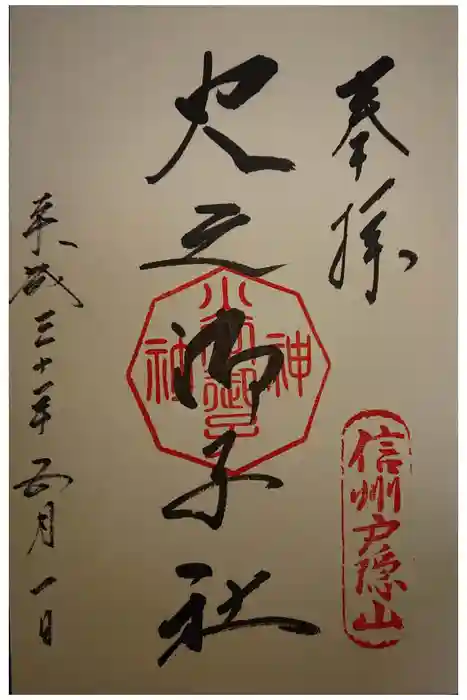 奉拝
信州戸隠山
火之御子社
神社
平成三十年五月一日